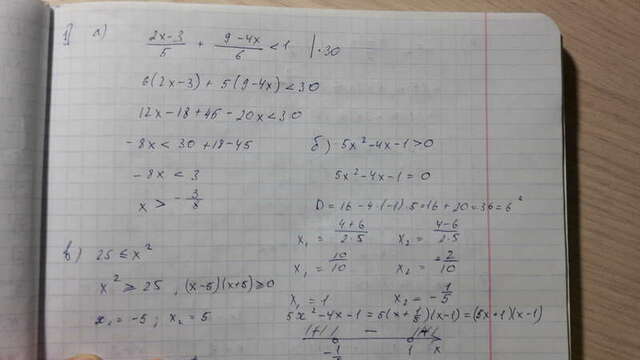 1) а) (2x-3)/5 + (9-4x)/6 < 1 |·30
6(2x-3) + 5(9-4x) < 30
12x-18+45-20x < 30
-8x < 30+18-45
-8x < 3
x > -3/8
б) 5x²-4x-1>0
5x²-4x-1=0
D=16-4·(-1)·5=16+20=36=6²
x₁ = (4+6)/(2·5) x₂ = (4-6)/(2·5)
x₁ = 10/10 x₂ = -2/10
x₁ = 1 x₂ = -1/5
5x²-4x-1=5(x+1/5)(x-1)=(5x+1)(x-1)
(+) - (+)
-1/5 1 x
в) 25 ≤ x²
x² ≥ 25, (x-5)(x+5) ≥ 0
x₁ = -5; x₂ = 5